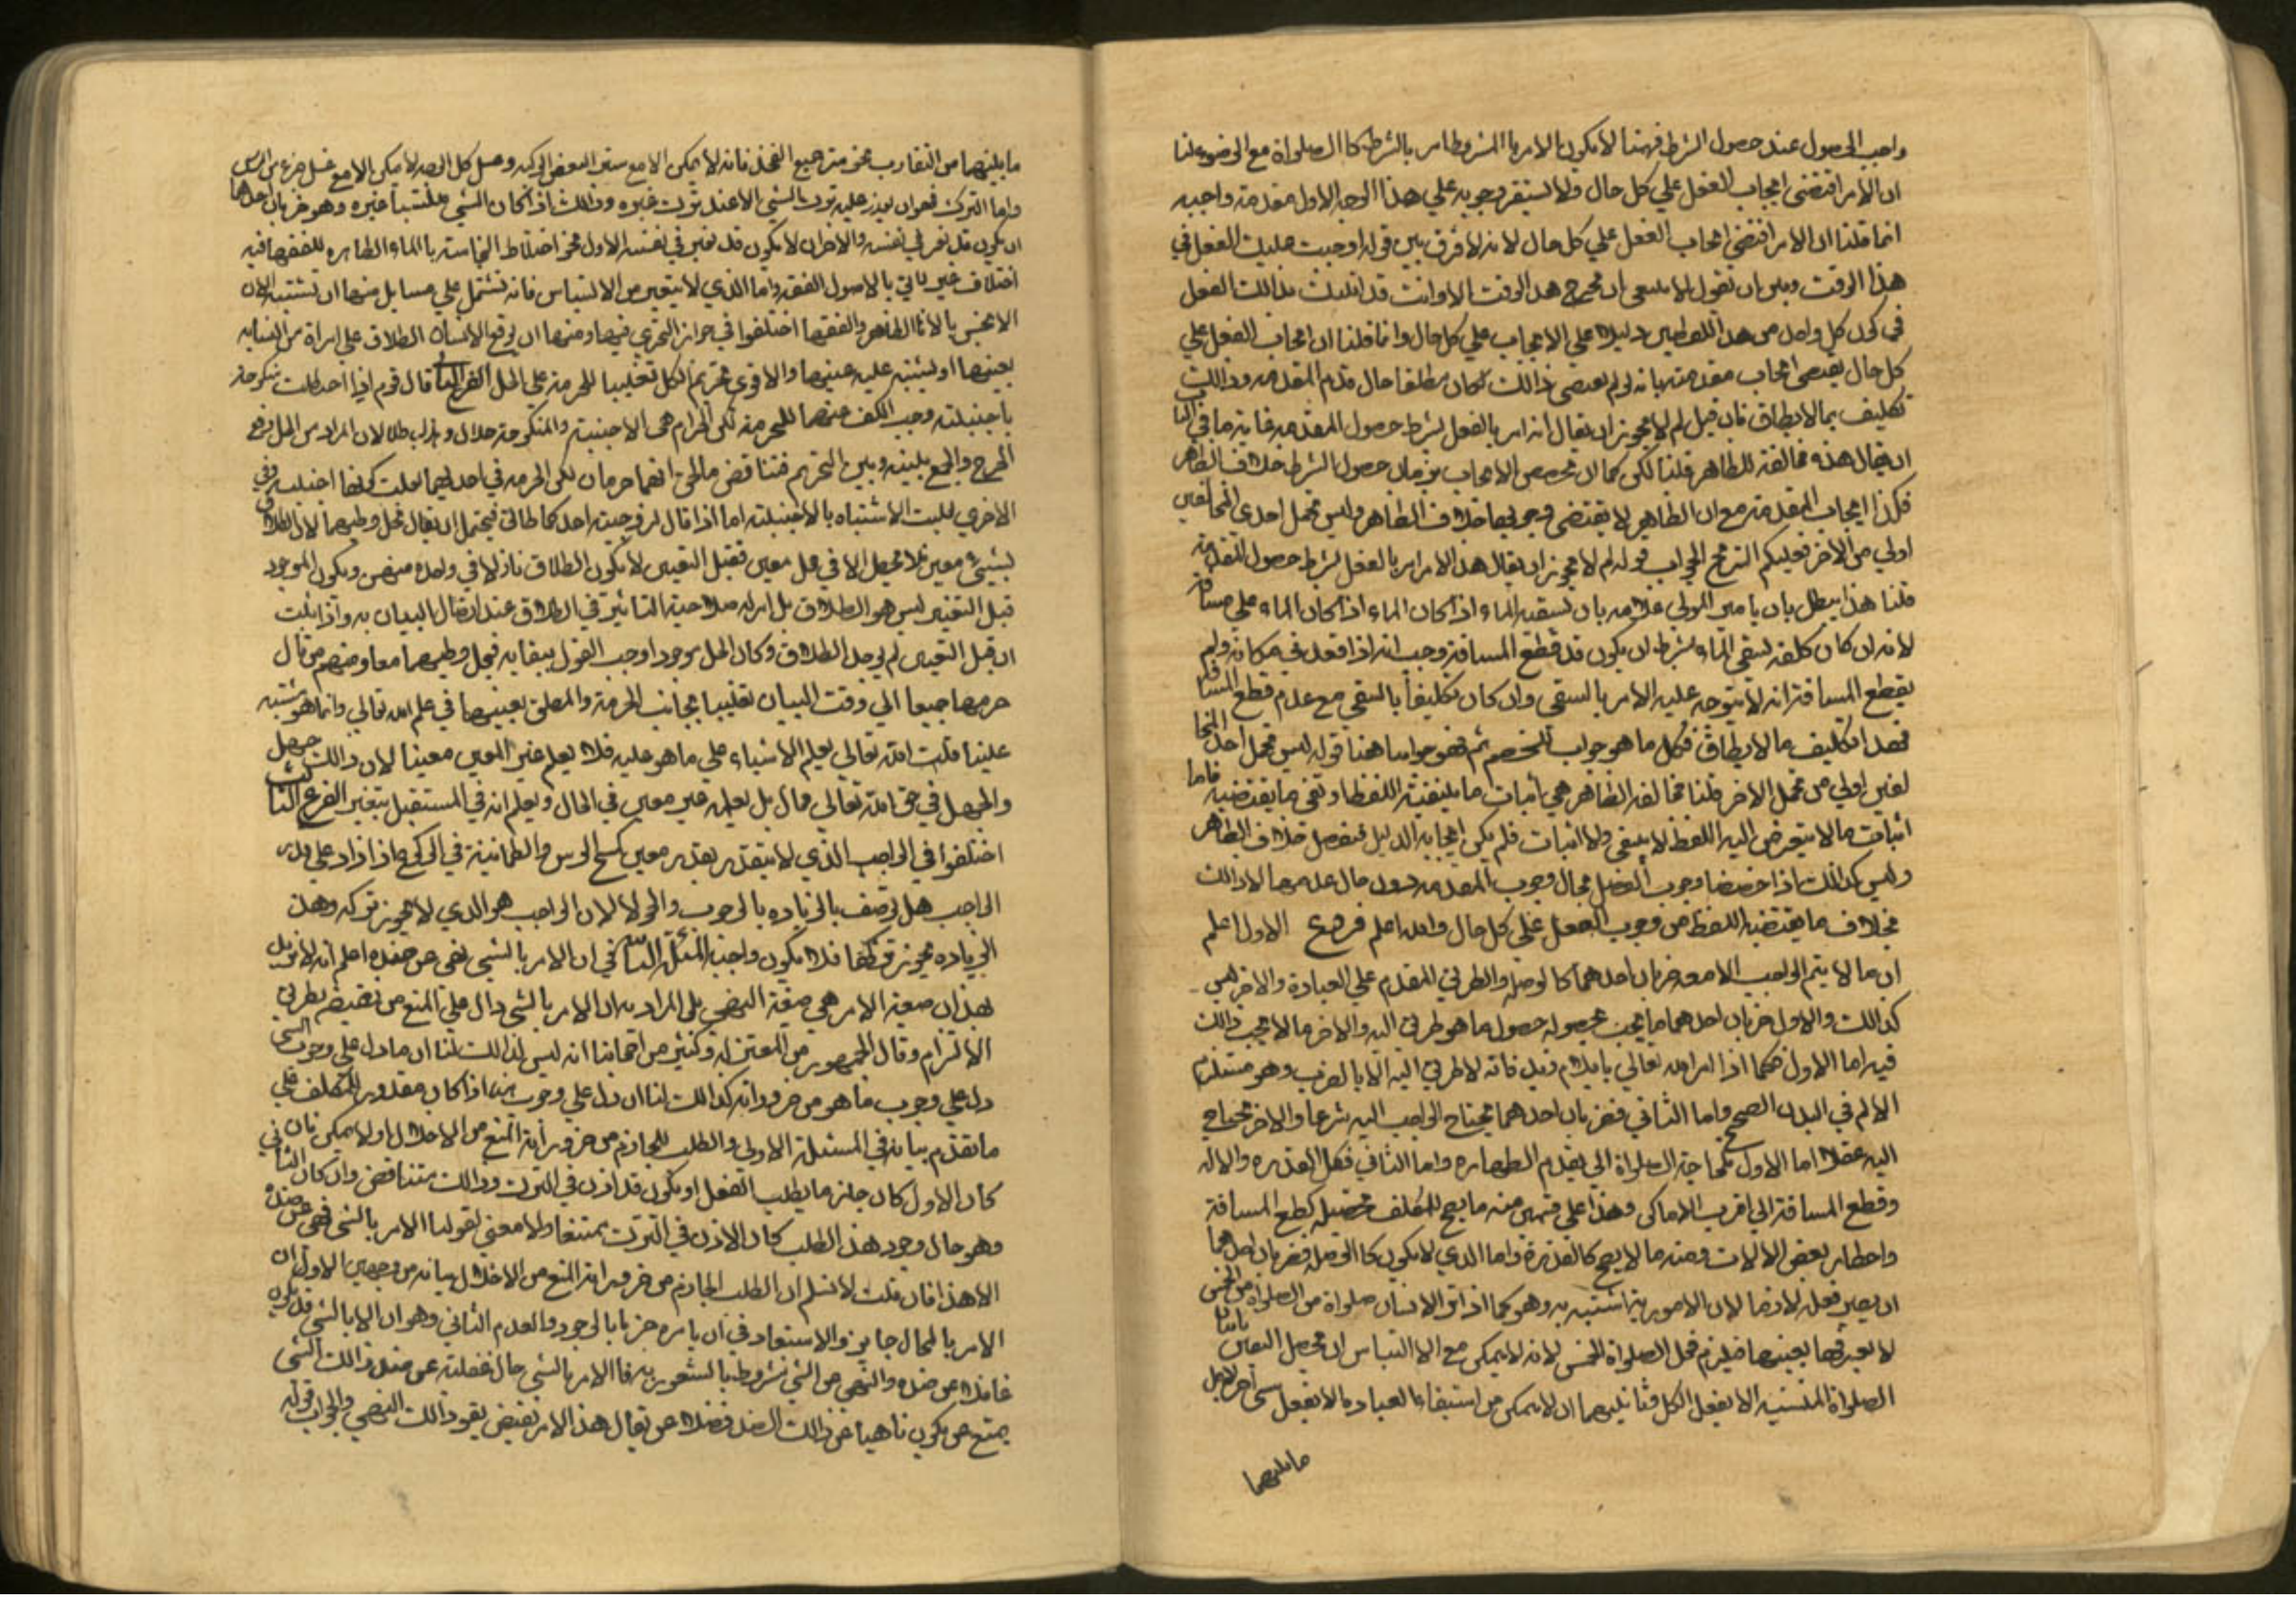 واجب الحصول عند حصول الشرط فههنا لا يكون الامر با المشروط امر بالشرط كا الصلواة مع الوضوء لنا
ان الامر اقتضى ايجاب الفعل علي كل حال ولا يستقر وجوبه علي هذا الوجه الاول مقدمته واجبه
انما قلنا ان الامر اقتضي ايجاب الفعل علي كل حال لانه لا فرق بين قوله اوجبت عليك الفعل في
هذا الوقت وبين ان يقول لا ينبغي ان يخرج هذا الوقت الا وانت قد اتيت بذالك الفعل
في كون كل واحد من هذا اللفظين دليلا علي الايجاب علي كل حال وانما قلنا ان ايجاب الفعل علي
كل حال يقتضي ايجاب مقدمته بانه لو لم يقتضي ذالك لكان مطلقا حال قدم المقدمه وذالك
تكليف بما لا يطاق فان قيل لم لا يجوز ان يقال انه امر بالفعل بشرط حصول المقدمه غاية ما في البا
ان يقال هذه مخالفة للظاهر قلنا لكن كما ان تخصيص الايجاب بزمان حصول الشرط خلاف الظاهر
فكذا ايجاب المقدمة مع ان الظاهر لا يقتضى وجوبها خلاف الظاهر وليس تحمل احدي المخالفين
اولي من الاخر فعليكم الترجيح الجواب قوله لم لا يجوز ان يقال هذا الامر امر بالفعل بشرط حصول المقدمة
قلنا هذا يبطل بان يامر المولي غلامه بان يسقيه الماء اذا كان الماء اذا كان الماء علي مسافة
لانه ان كان كلفه بسقي الماء بشرط ان يكون قد قطع المسافة وجب انه اذا قعد في مكانه ولم
يقطع المسافة انه لا يتوجه عليه الامر بالسقي وان كان تكليفا بالسقي مع عدم قطع المسافه
فهذا تكليف ما لا يطاق فكل ما هو جواب للخصم ثم فهو جوابنا ههنا قوله ليس تحمل احد المخا
لفين اولي من تحمل الاخر قلنا مخالفة الظاهر هي اثبات ما ينفيه اللفظ او نفي ما يقتضيه فاما
اثبات ما لا يتعرض اليه اللفظ لا بنفي ولا اثبات فلم يكن ايجابه الدليل منفصل خلاف الظاهر
وليس كذالك اذا خصصنا وجوب الفعل بحال وجوب المقدمه دون حال عدمها لان ذالك
بخلاف ما يقتضيه اللفظ من وجوب الفعل علي كل حال والله اعلم فروع الاول اعلم
ان ما لا يتم الواجب الا معه ضربان احدهما كالوصلة والطريق المتقدم علي العبادة والاخر ليس
كذالك والاول ضربان احدهما ما يجب بحصوله حصول ما هو طريق اليه والاخر ما لا يجب ذالك
فيه اما الاول فكما اذا امر الله تعالي بايلام زيد فانه لا طريق اليه الا بالضرب وهو مستلزم
الالم في البدن الصحيح واما الثاني فضربان احدهما يحتاج الواجب اليه شرعا والاخر يحتاج
اليه عقلا اما الاول كحاجة الصلواة الي تقدم الطهاره واما الثاني فكالقدره والاله
وقطع المسافة الي اقرب الاماكن وهذا علي قسمين منه ما يصح للمكلف تحصيله كقطع المسافة
واحضار بعض الالات ومنه ما لا يصح كالقدرة واما الذي لا يكون كا الوصله فضربان احدهما
ان يصير فعله لازما لان الامور به اشتبه به وهو كما اذا ترك الانسان صلواة من الصلواة من الخمس
لا يعرفها بعينها فيلزمه فعل الصلواة الخمس لانه لا يمكن مع الا التباس ان يحصل اليقين باتيا
الصلواة المنسيه الا بفعل الكل وثانيهما ان لا يمكن من استيفاء العباده الا بفعل شي اخر لاجل
ما بينهما
ما بينهما من التقارب نحو ستر جميع الفخذ فانه لا يمكن الا مع ستر البعض الركبه وغسل كل الوجه لا يمكن الا مع غسل جزء من الراس
واما الترك فهو ان يتعذر عليه ترك الشي الا عند ترك غيره وذالك اذا كان الشي ملتبسا بغيره وهو ضربان احدهما
ان يكون قد تغير في نفسه والاخر ان لا يكون قد تغير في نفسه الاول نحو اختلاط النجاسة بالماء الطاهر وللفقها فيه
اختلاف غير لائق بالاصول الفقه واما الذي لا يتغير من الالتباس فانه يشتمل علي مسايل منها ان يشتبه الاناء
الانجس بالانا الطاهر والفقها اختلفوا في جواز التحري فيها ومنها ان يوقع الانسان الطلاق علي امراة من نسايه
بعينها او يشتبه عليه عينها والاقوي تحريم الكل تغليبا للحرمة علي الحل الفرع الثا قال قوم اذا اختلطت منكوحة
باجنبيته وجب الكف عنهما للحرمة لكن الحرام هي الاجنبية والمنكوحة حلال وهذا باطلا لان المراد من الحل رفع
الحرج والجمع بينه وبين التحريم متناقض فالحق انهما حرمان لكن الحرمة في احديهما بعلت كونها اجنبيه وفي
الاخري بعلت الاشتباه بالاجنبية اما اذا قال لزوجيه احدكما طالق فيحتمل ان يقال بحل وطيهما لان الطلاق
بشيئ معين فلا يحصل الا في محل معين فقبل التعيين لا يكون الطلاق نازلا في واحده منهن ويكون الموجود
قبل التعيين ليس هو الطلاق بل امر له صلاحية التاثير في الطلاق عند اتصال البيان به واذا ثبت
ان قبل التعيين لم يوجد الطلاق وكان الحل موجودا وجب القول ببقايه فيحل وطيهما معا ومنهم من قال
حرمها جميعا الي وقت البيان تغليبا بجانب الحرمة والمطلق بعينها في علم الله تعالي وانما هو مشتبه
علينا قلت الله تعالي يعلم الاشياء علي ما هو عليه فلا يعلم غير المعين معينا لان ذالك جهل
والجهل في حق الله تعالي محال بل يعلمه غير معين في الحال ويعلم انه في المستقبل يتعين الفرع الثالث
اختلفوا في الواجب الذي لا يتقدر بقدر معين كمسح الراس والطمانينة في الركوع اذا زاد علي قدر
الواجب هل توصف بالزياده بالوجوب والحق لا لان الواجب هو الذي لا يجوز تركه وهذه
الزياده يجوز تركها فلا يكون واجبة المسئلة الثا في ان الامر بالشيي نهي عن ضده اعلم انه لا نريد
بهذا ان صيغة الامر هي صيغة النهي بل المراد به ان الامر بالشي دال علي المنع من نقيضه بطريق
الالتزام وقال الجمهور من المعتزلة وكثير من اصحابنا انه ليس كذالك لنا ان ما دل علي وجوب الشي
دل علي وجوب ما هو من ضروراته كذالك لنا ان دل علي وجوب شيء اذا كان مقدور للمكلف علي
ما تقدم بيانه في المسئلة الاولي والطلب الجازم من ضرورته المنع من الاخلال اولا يمكن فان
كان الاول كان جازما بطلب الفعل او يكون قد اذن في الترك وذالك متناقض وان كان الثاني
وهو حال وجود هذا الطلب كان الاذن في الترك ممتنعا ولا معني لقولنا الامر بالشي نهي عن ضده
الا هذا فان قلت لا نسلم ان الطلب الجازم من ضرورته المنع من الاخلال بيانه من وجهين الاول ان
الامر بالمحال جايز والاستبعاد في ان يامره جزما بالوجود والعدم الثاني وهو ان الامر بالشي قد يكون
غافلا عن ضده والنهي عن الشي مشروط بالشعور به فا الامر بالشي حال غفلته عن ضد ذالك الشي
يمتنع عن يكون ناهيا عن ذالك الضد فضلا عن يقال هذا الامر نفس يقو ذالك النهي والجواب قوله